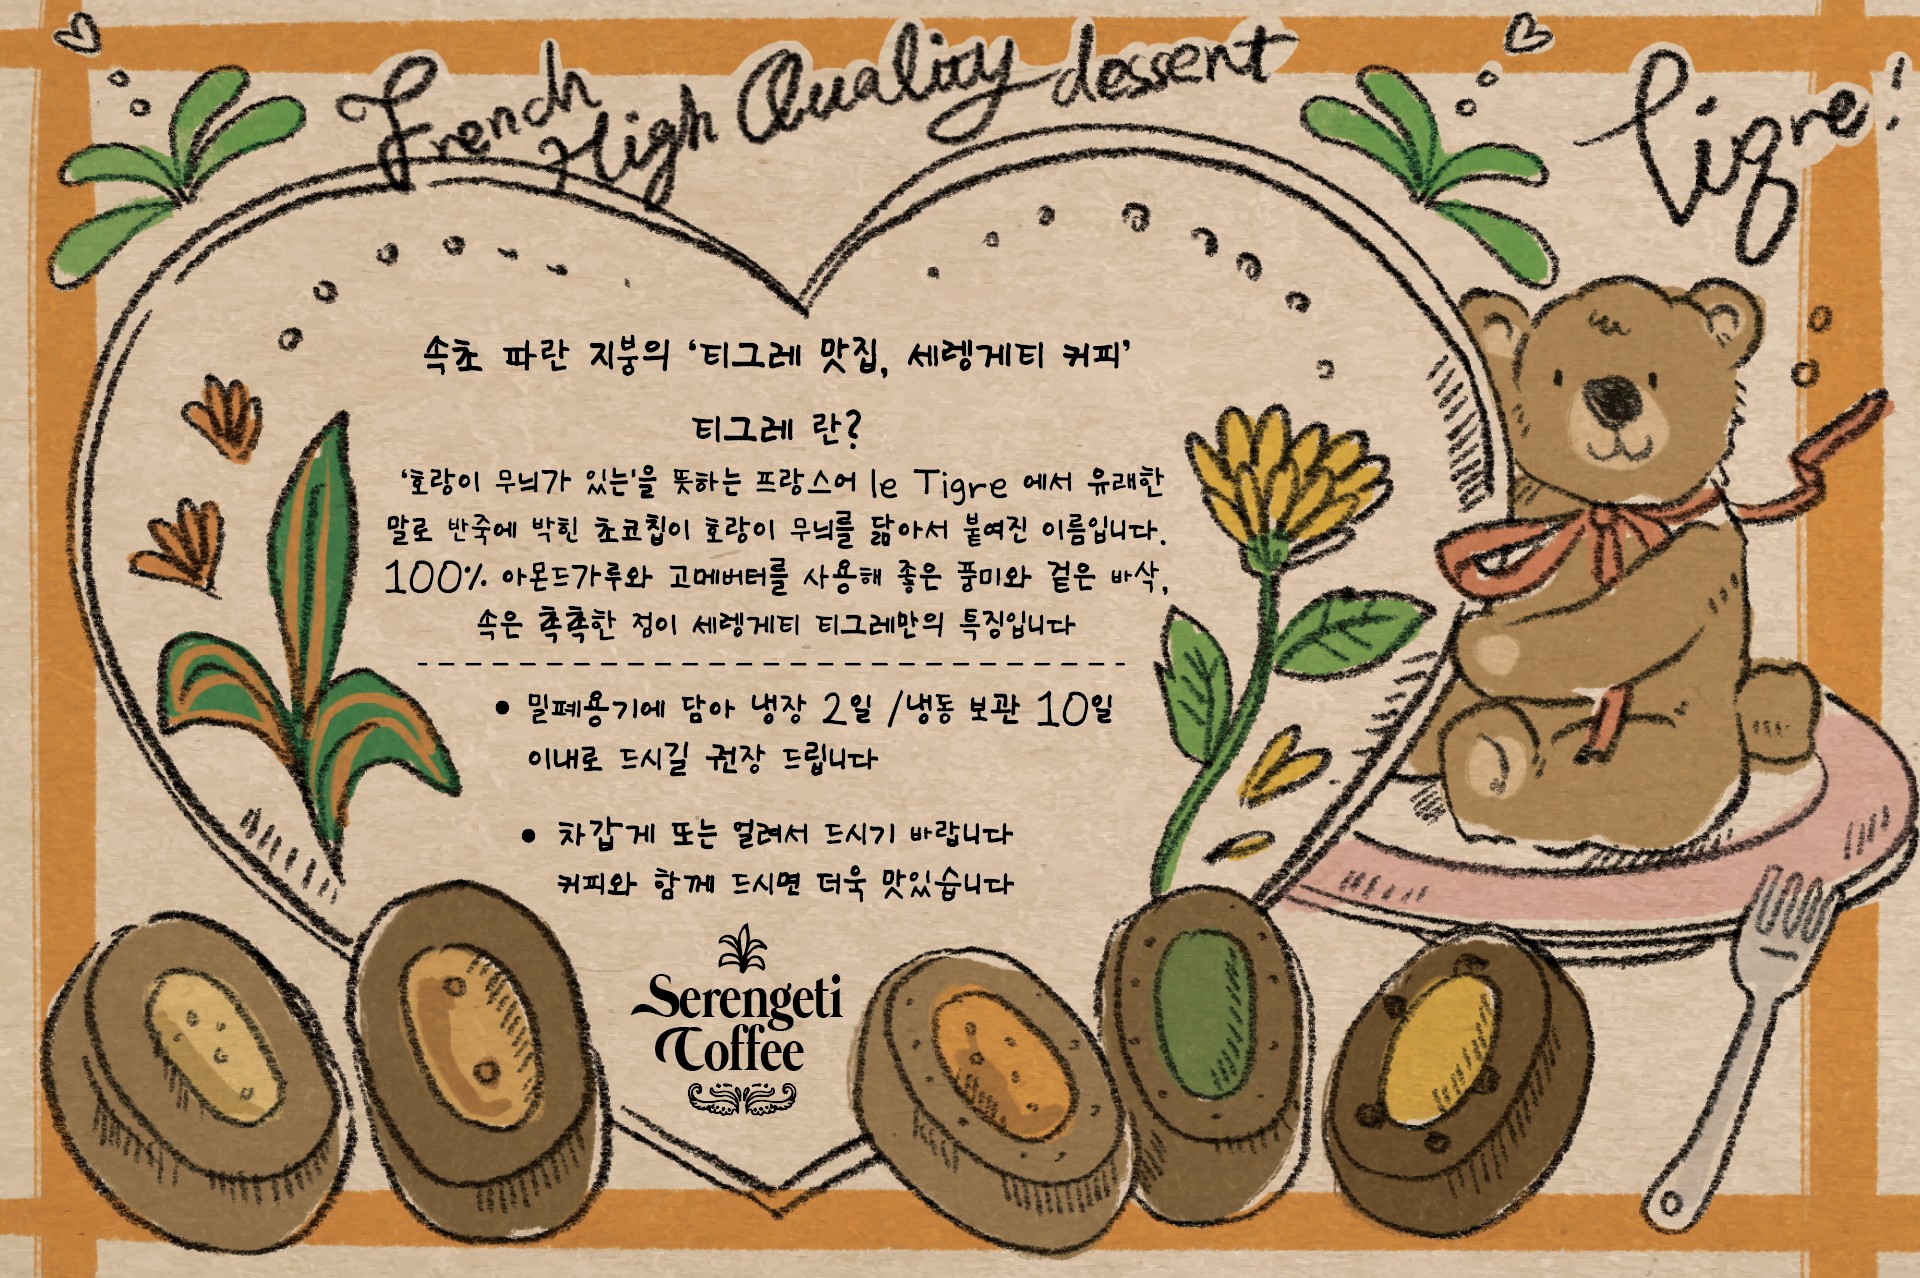 French High Quality dessent
Tigre!
속초 파란 지붕의 ‘티그레 맛집, 세렝게티 커피’
티그레 란?
‘호랑이 무늬가 있는'을 뜻하는 프랑스어 le Tigre 에서 유래한
말로 반죽에 박힌 초코칩이 호랑이 무늬를 닮아서 붙여진 이름입니다.
100% 아몬드가루와 고메버터를 사용해 좋은 풍미와 겉은 바삭,
속은 촉촉한 점이 세렝게티 티그레만의 특징입니다
• 밀폐용기에 담아 냉장 2일 /냉동 보관 10일
이내로 드시길 권장 드립니다
• 차갑게 또는 얼려서 드시기 바랍니다
커피와 함께 드시면 더욱 맛있습니다
Serengeti
Coffee